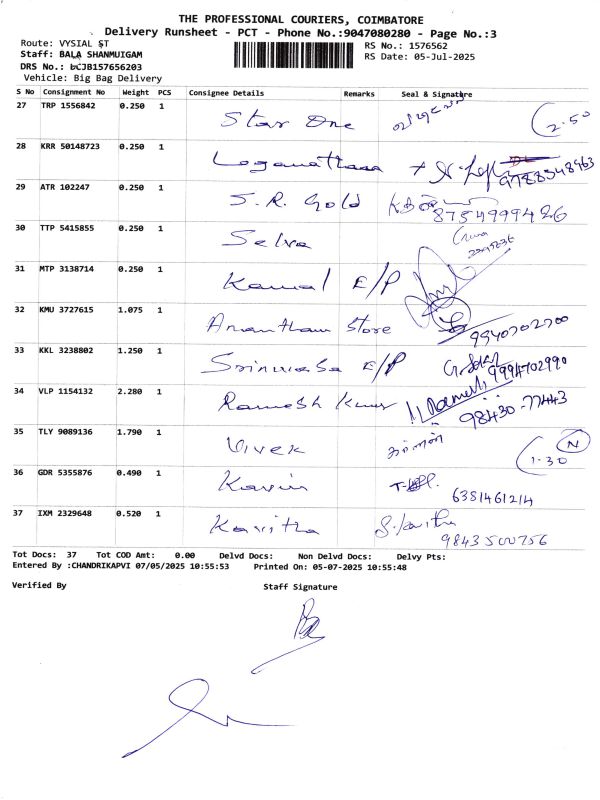 THE PROFESSIONAL COURIERS, COIMBATORE
Delivery Runsheet - PCT - Phone No.:9047080280 - Page No.:3
Route: VYSIAL ST
RS No.: 1576562
Staff: BALA SHANMUIGAM
RS Date: 05-Jul-2025
DRS No.: BCJB157656203
Vehicle: Big Bag Delivery
S No Consignment No Weight PCS Consignee Details Remarks Seal & Signature
27 TRP 1556842 0.250 1 Star One 2.50
28 KRR 50148723 0.250 1 9788548963
29 ATR 102247 0.250 1 S.R. Gold 8754999426
30 TTP 5415855 0.250 1 Selva
31 MTP 3138714 0.250 1 Kamal E/P
32 KMU 3727615 1.075 1 Anantham Store
33 KKL 3238802 1.250 1 Srinivasa E/P 9994702990
34 VLP 1154132 2.280 1 Ramesh Kumar 98430-77443
35 TLY 9089136 1.790 1 Vivek 1.30 N
36 GDR 5355876 0.490 1 Kavin 6381461214
37 IXM 2329648 0.520 1 Kavitha S.Kavitha 9843500756
Tot Docs: 37 Tot COD Amt: 0.00 Delvd Docs: Non Delvd Docs: Delvy Pts:
Entered By :CHANDRIKAPVI 07/05/2025 10:55:53 Printed On: 05-07-2025 10:55:48
Verified By Staff Signature